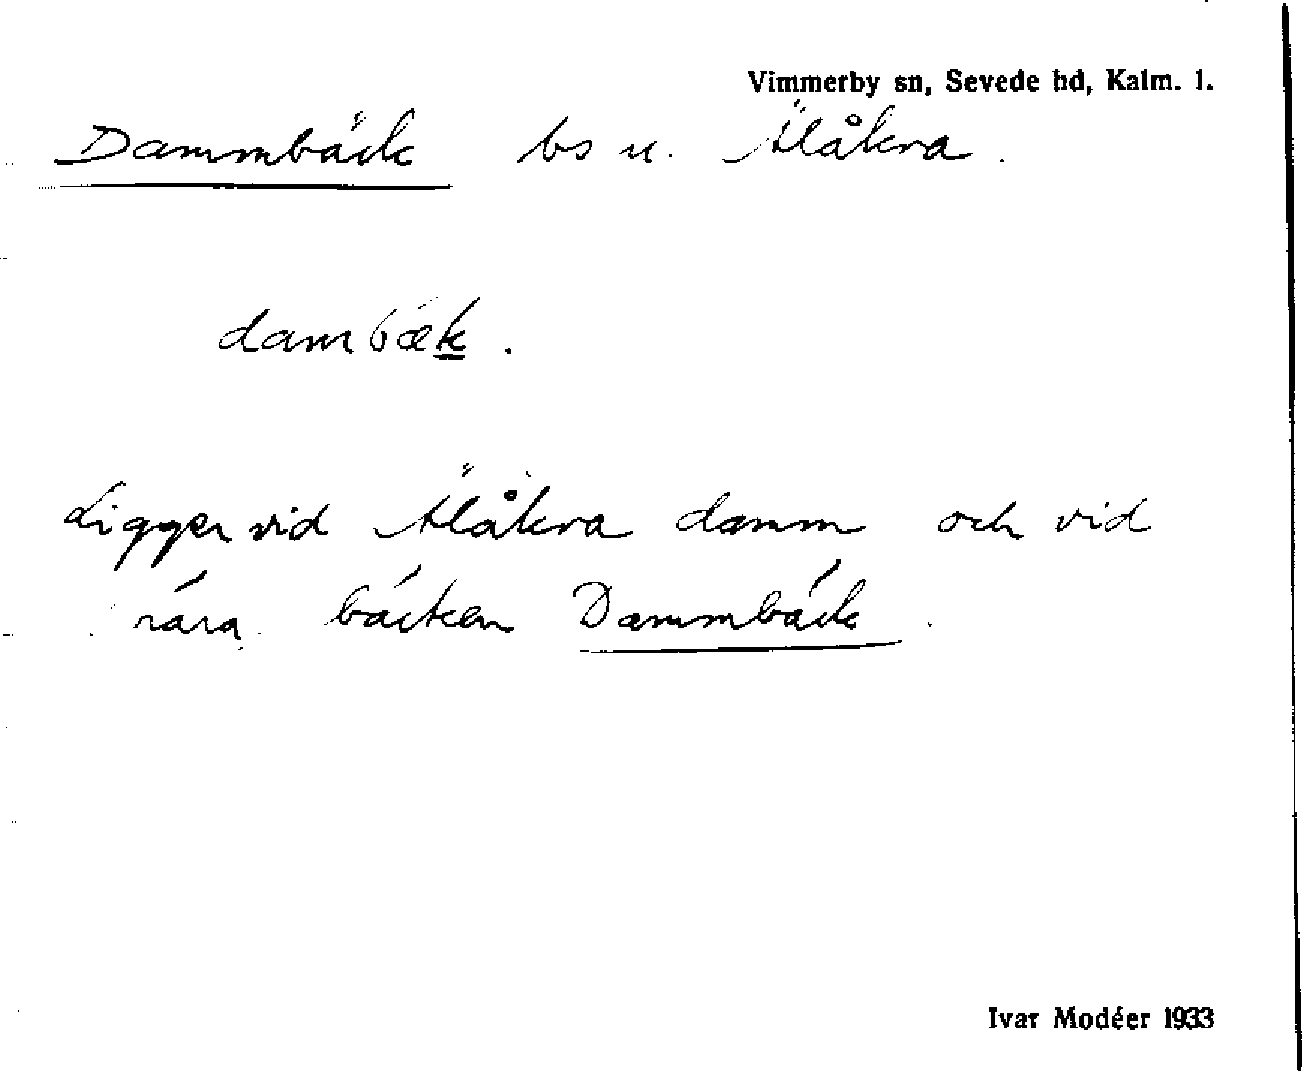 Vimmerby sn, Sevede hd, Kalm. l.
Dammbäck bs u. Älåkra.
dambæk.
Ligger vid Älåkra damm och vid
nära bäcken Dammbäck.
Ivar Modéer 1933